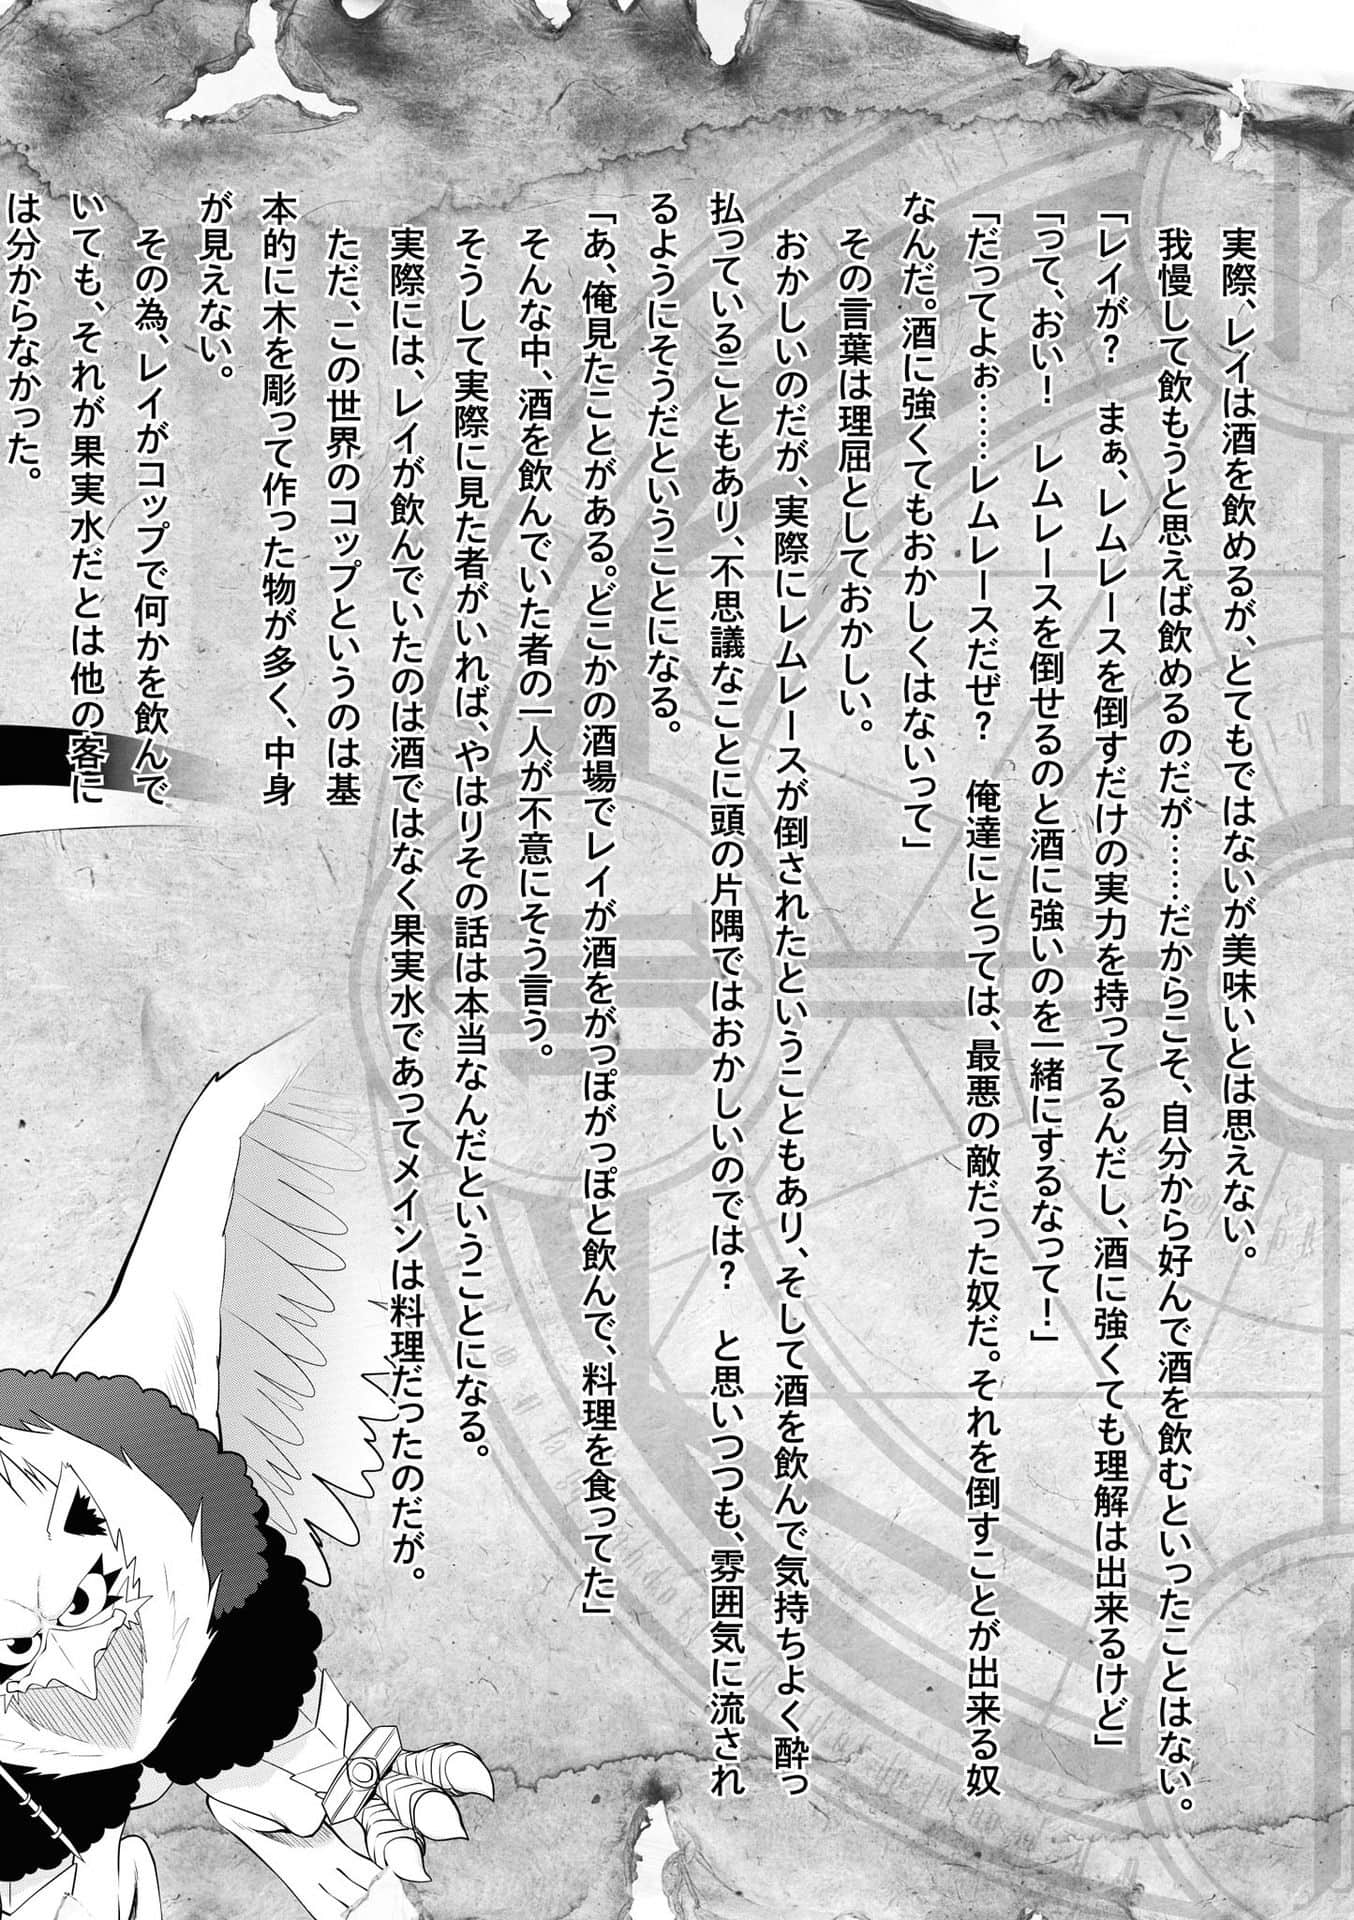 実際、レイは酒を飲めるが、とてもではないが美味いとは思えない。
　我慢して飲もうと思えば飲めるのだが……だからこそ、自分から好んで酒を飲むといったことはない。
「レイが？　まぁ、レムレースを倒すだけの実力を持ってるんだし、酒に強くても理解は出来るけど」
「って、おい！　レムレースを倒せるのと酒に強いのを一緒にするなって！」
「だってよぉ……レムレースだぜ？　俺達にとっては、最悪の敵だった奴だ。それを倒すことが出来る奴
なんだ。酒に強くてもおかしくはないって」
　その言葉は理屈としておかしい。
　おかしいのだが、実際にレムレースが倒されたということもあり、そして酒を飲んで気持ちよく酔っ
払っていることもあり、不思議なことに頭の片隅ではおかしいのでは？　と思いつつも、雰囲気に流され
るようにそうだということになる。
「あ、俺見たことがある。どこかの酒場でレイが酒をがっぽがっぽと飲んで、料理を食ってた」
　そんな中、酒を飲んでいた者の一人が不意にそう言う。
　そうして実際に見た者がいれば、やはりその話は本当なんだということになる。
　実際には、レイが飲んでいたのは酒ではなく果実水であってメインは料理だったのだが。
　ただ、この世界のコップというのは基
本的に木を彫って作った物が多く、中身
が見えない。
　その為、レイがコップで何かを飲んで
いても、それが果実水だとは他の客に
は分からなかった。